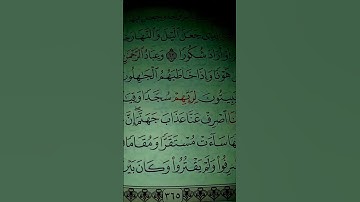 جَعَلَ ٱلَّيْلَ وَٱلنَّهَارَ
أَرَادَ شُكُورًا ۝ وَعِبَادُ ٱلرَّحْمَٰنِ
هَوْنًا وَإِذَا خَاطَبَهُمُ ٱلْجَٰهِلُونَ
يَبِيتُونَ لِرَبِّهِمْ سُجَّدًا وَقِيَ
نَا ٱصْرِفْ عَنَّا عَذَابَ جَهَنَّمَ ۖ إِنَّ
هَا سَآءَتْ مُسْتَقَرًّا وَمُقَامًا
رِفُوا۟ وَلَمْ يَقْتُرُوا۟ وَكَانَ بَيْنَ
٣٦٥